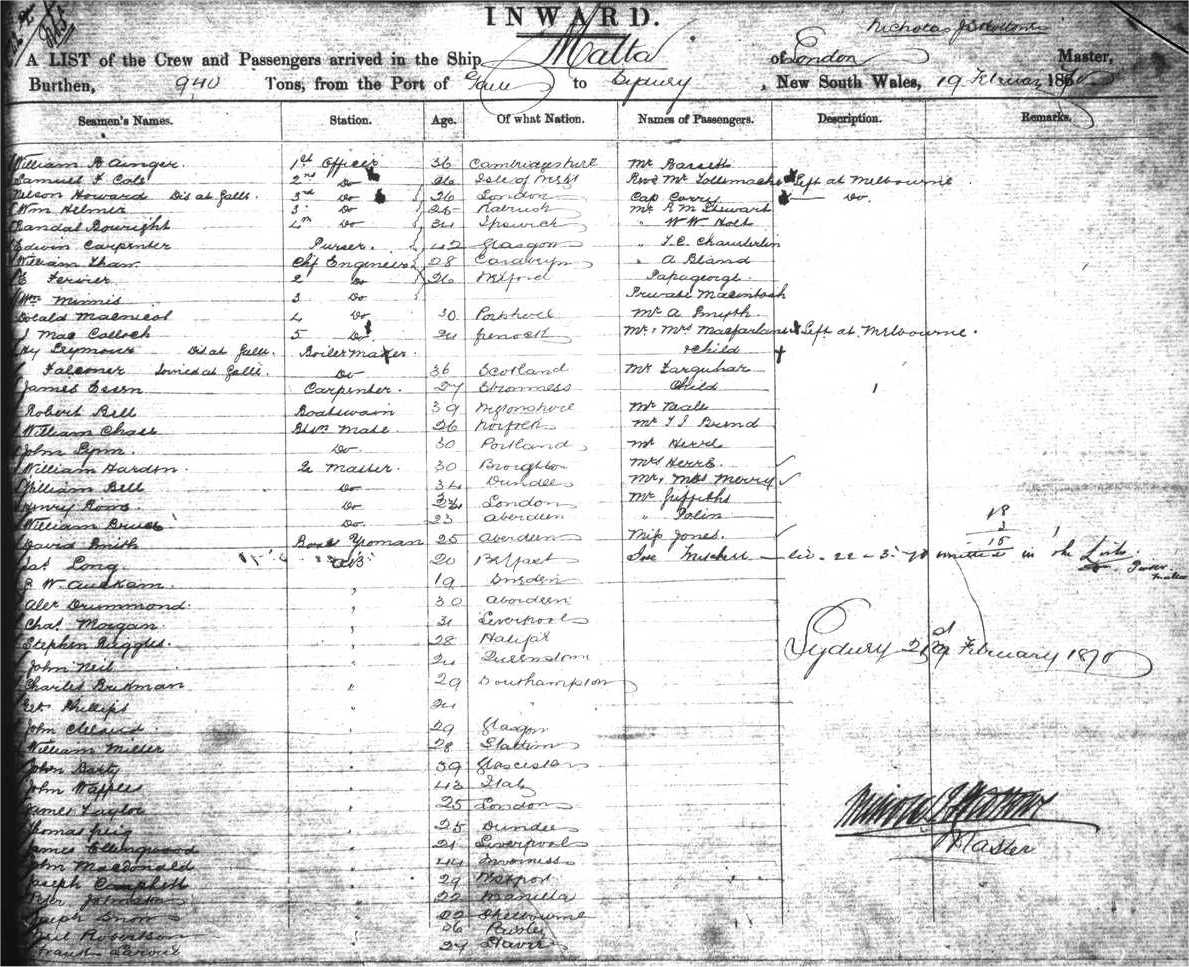 INWARD.
Nicholas J
A LIST of the Crew and Passengers arrived in the Ship Malta of London Master,
Burthen, 940 Tons, from the Port of Galle to Sydney, New South Wales, 19 Februar 1870
Seamen's Names. Station. Age. Of what Nation. Names of Passengers. Description. Remarks.
William B Ainger. 1st Officer 36 Cambridgeshire Mr Bassett
Samuel F Cole 2nd Do 26 Isle of Revd Mr Tollemache Left at Melbourne
Nelson Howard Dis at Galle. 3rd Do 26 London Cap Curry Do.
Wm Helmer 3 Do 25 Mr R M Stewart
Randal Bowright 4th Do 34 Ipswich " W W Holt
Edwin Carpenter Purser. 42 Glasgow " T. C. Chamberlin
William Shaw Chf Engineer 38 " A Bland
Fervier 2 Do 26 Milford Papageorgi.
Wm Minnis 3 Do Private Macintosh
Donald Macnicol 4 Do 30 Mr A Smyth
J Mac Culloch 5 Do 24 Greenock Mr & Mrs Macfarlane Left at Melbourne.
Hy Seymour Dis at Galle. Boilermaker & Child
Falconer Joined at Galle. Do 36 Scotland Mr Farquhar
James Essen Carpenter. 27 Stromness Child
Robert Bell Boatswain 39 Mr Neale
William Chase Btsn Mate 26 Norfolk Mr T J
John Lynn. Do. 30 Portland Mr Herre
William Harden. Qr Master. 30 Broughton Mrs Herre.
William Bell Do 34 Dundee Mr, Mrs Merry
Henry Rows Do London Mr Griffiths
William Bruce Do. 23 Aberdeen " Polin
David Smith Boxs Yeoman 25 Aberdeen Miss Jones.
Jas Long. AB 20 Belfast Jse Mitchell 22-3-70 omitted in the Lists.
18
3
15
J W Auckam. " 19 Dresden
Alex Drummond. " 30 Aberdeen
Chas Morgan " 31 Liverpool
Stephen Ruggles. " 28 Halifax
John Neil " 24 Queenstown
Charles Brikman " 29 Southampton
Geo Phillips " 24 "
John Cleland " 29 Glasgow
William Miller " 28 Stettin
John Barty " 39 Gloucester
John Wapples " 43 Italy
James Taylor " 25 London
Thomas Greig " 25 Dundee
James Collingwood " 21 Liverpool
John MacDonald " 44 Inverness
Joseph Campbell " 29 Westport
Peter Johnston " 22 Manilla
Joseph Snow " 22 Shelbourne
Robertson 26
Frank 27 Havre
Sydney 21st February 1870
Master